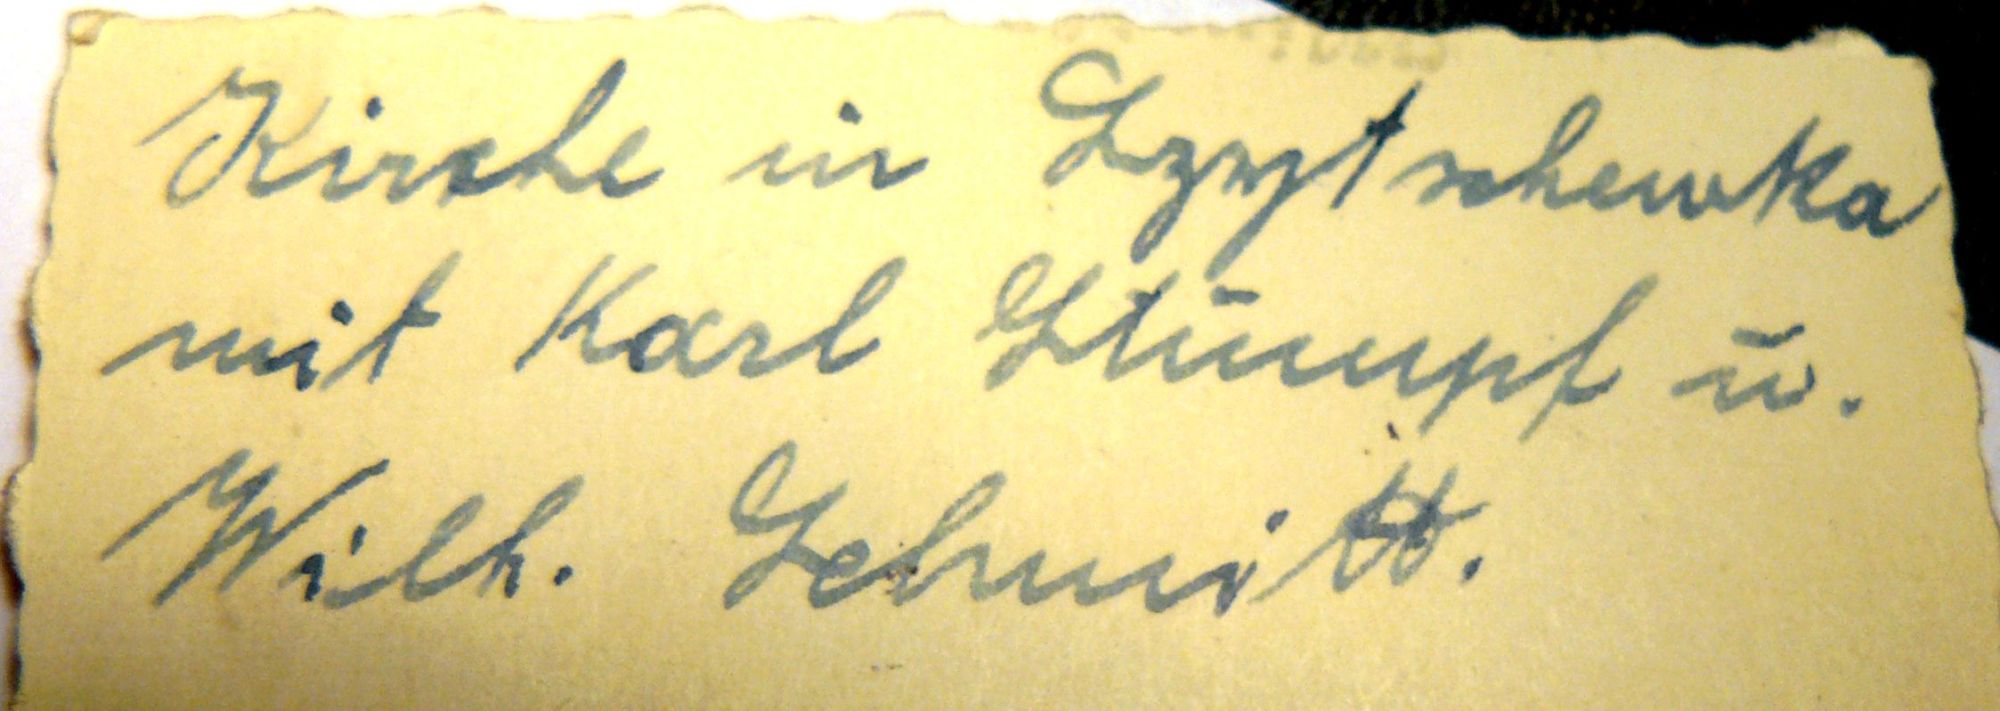 Kirche in Szytschewka
mit Karl Stumpf u.
Wilh. Schmitt.